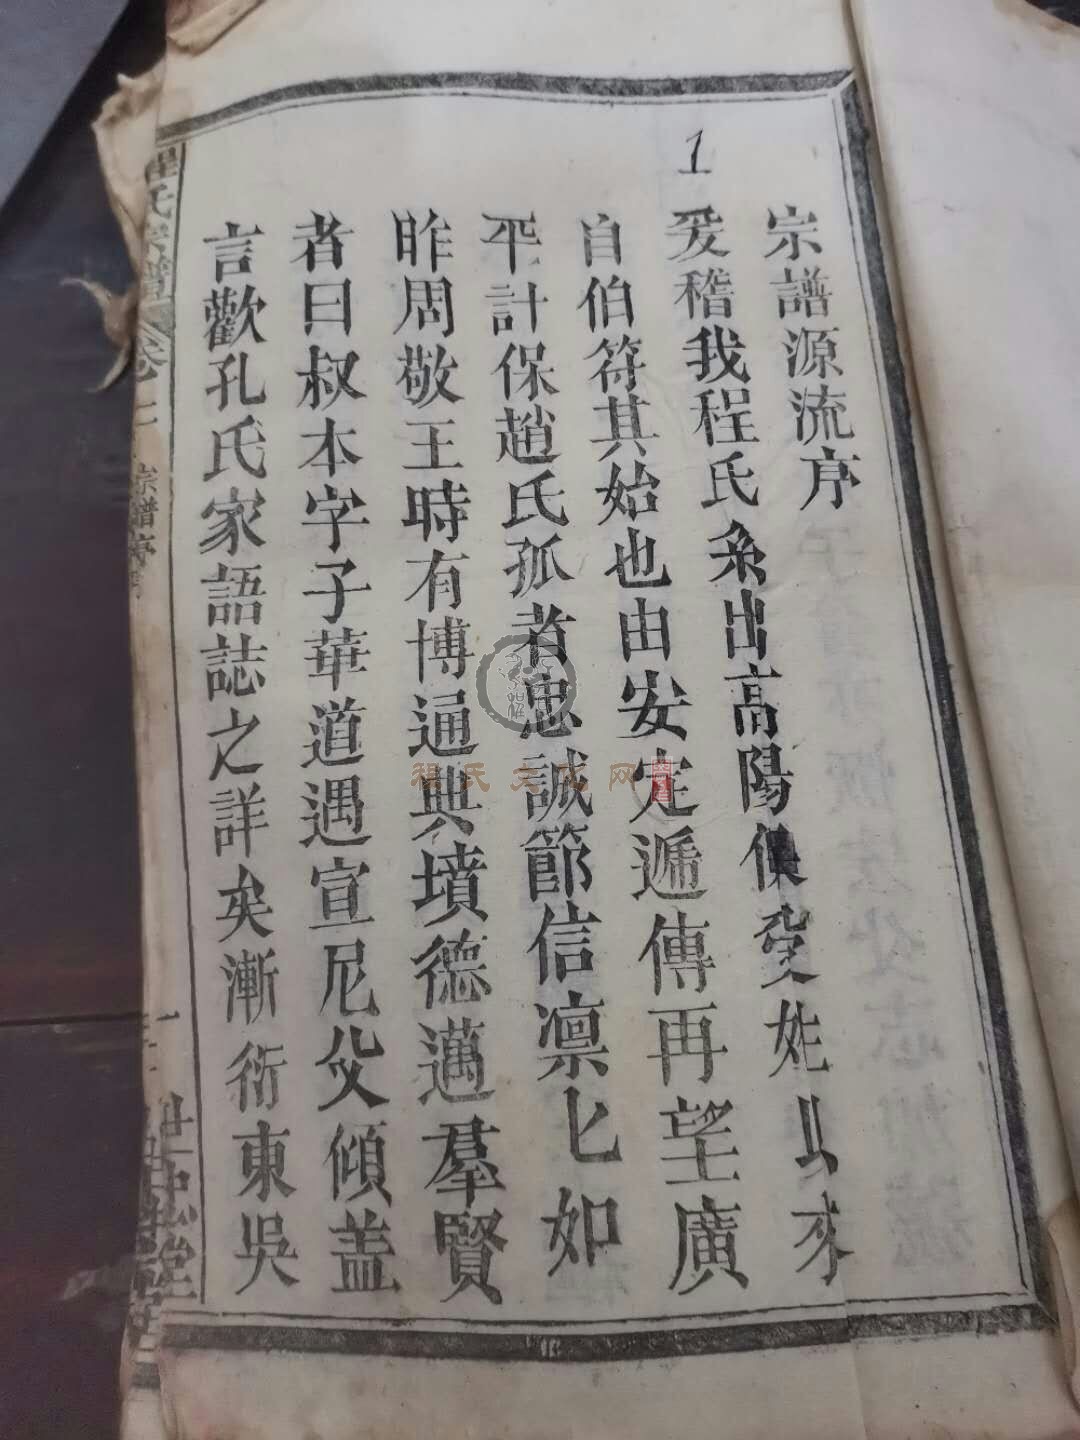 1
宗譜源流序
爰稽我程氏系出高陽侯受姓以來
自伯符其始也由安定遞傳再望廣
平計保趙氏孤者忠誠節信凛匕如
昨周敬王時有博通典墳德邁羣賢
者曰叔本字子華道遇宣尼父傾盖
言歡孔氏家語誌之詳矣漸衍東吳
程氏宗譜 卷 上 宗譜序
世忠堂
程氏文化网